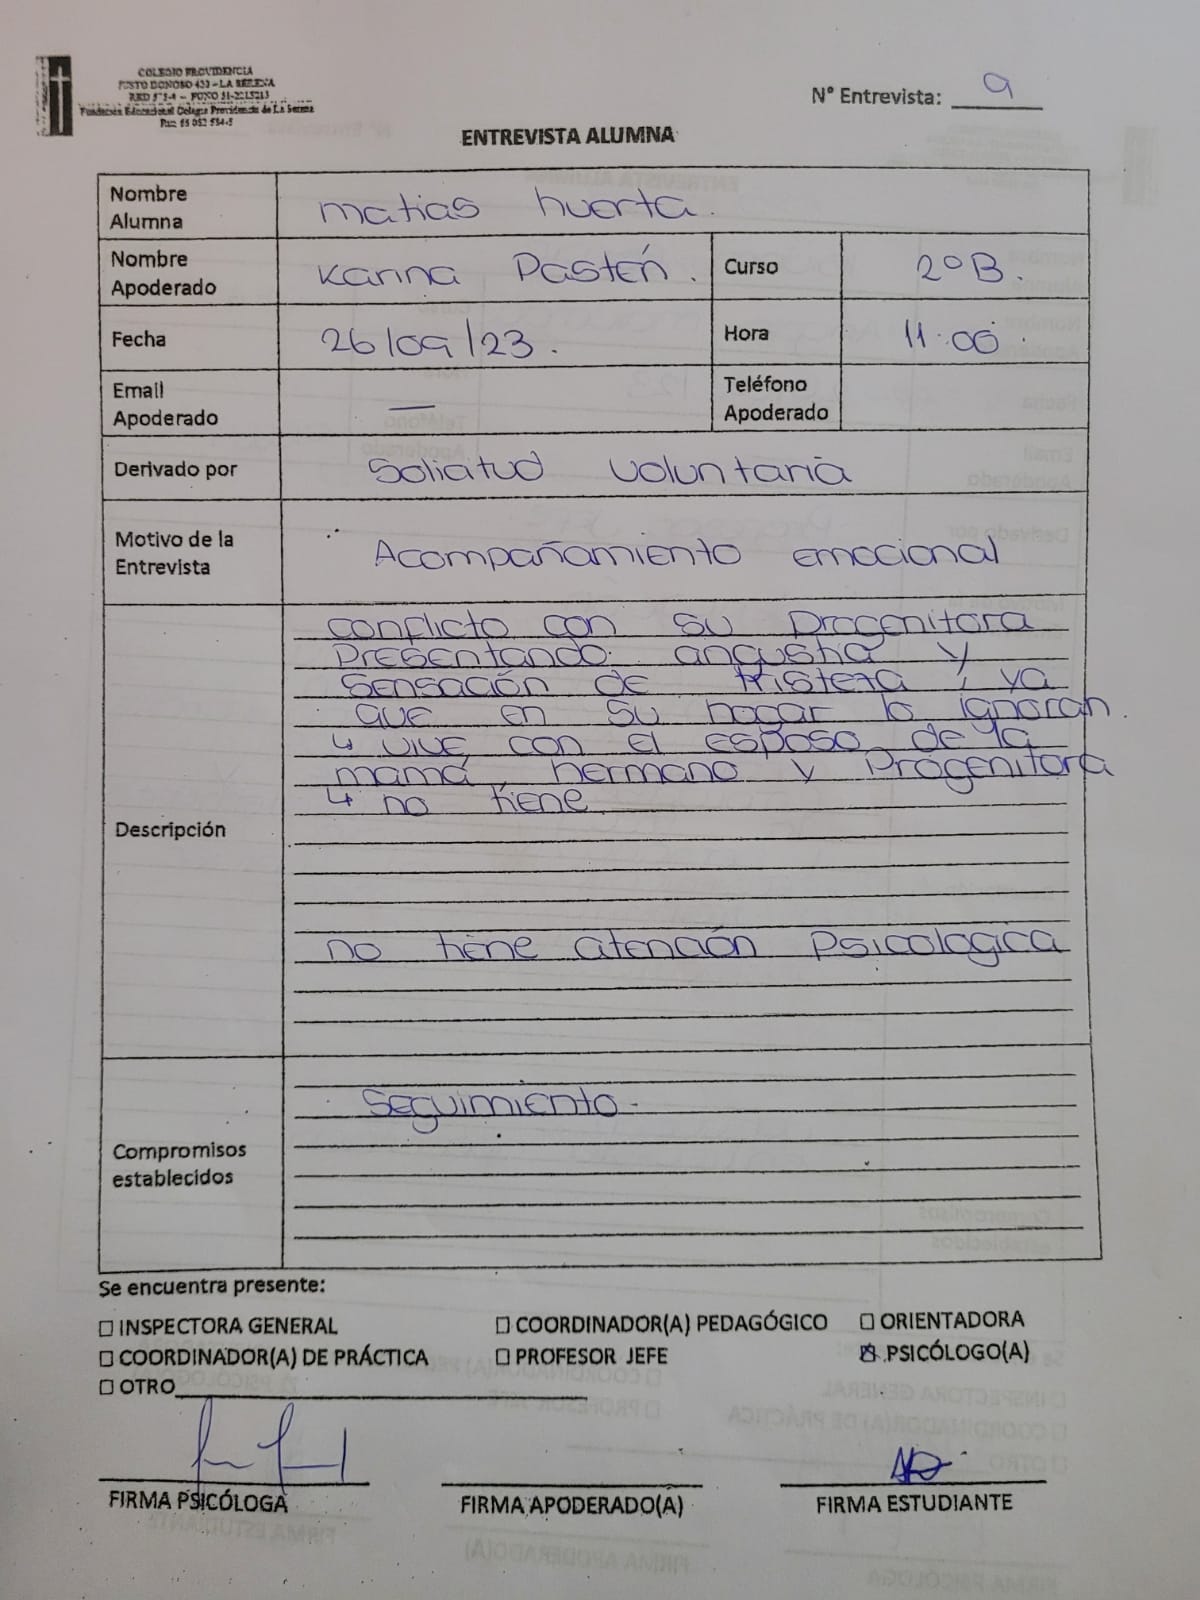 COLEGIO PROVIDENCIA
JUSTO DONOSO 420 - LA SERENA
Fundación Educacional Colegio Providencia de La Serena
N° Entrevista: 9
ENTREVISTA ALUMNA
Nombre Alumna
matias huerta.
Nombre Apoderado
Karina Pastén.
Curso
2°B.
Fecha
26/09/23.
Hora
11:00
Email Apoderado
—
Teléfono Apoderado
Derivado por
Solicitud voluntaria
Motivo de la Entrevista
Acompañamiento emocional
Descripción
conflicto con su progenitora
presentando angustia y
sensación de tristeza, ya
que en su hogar lo ignoran.
↳ vive con el esposo de la
mamá, hermano y progenitora
↳ no tiene
no tiene atención psicologica
Compromisos establecidos
Seguimiento.
Se encuentra presente:
☐ INSPECTORA GENERAL ☐ COORDINADOR(A) PEDAGÓGICO ☐ ORIENTADORA
☐ COORDINADOR(A) DE PRÁCTICA ☐ PROFESOR JEFE ☒ PSICÓLOGO(A)
☐ OTRO
FIRMA PSICÓLOGA FIRMA APODERADO(A) FIRMA ESTUDIANTE